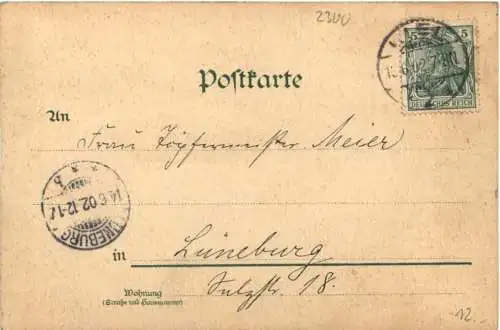 2300
5 5
KIEL
DEUTSCHES REICH
Postkarte
An
Frau Töpfermeister Meier
LÜNEBURG
14.6.02.12-1
* 5 *
in Lüneburg
Wohnung
(Straße und Hausnummer)
Sulzstr. 18.
12.